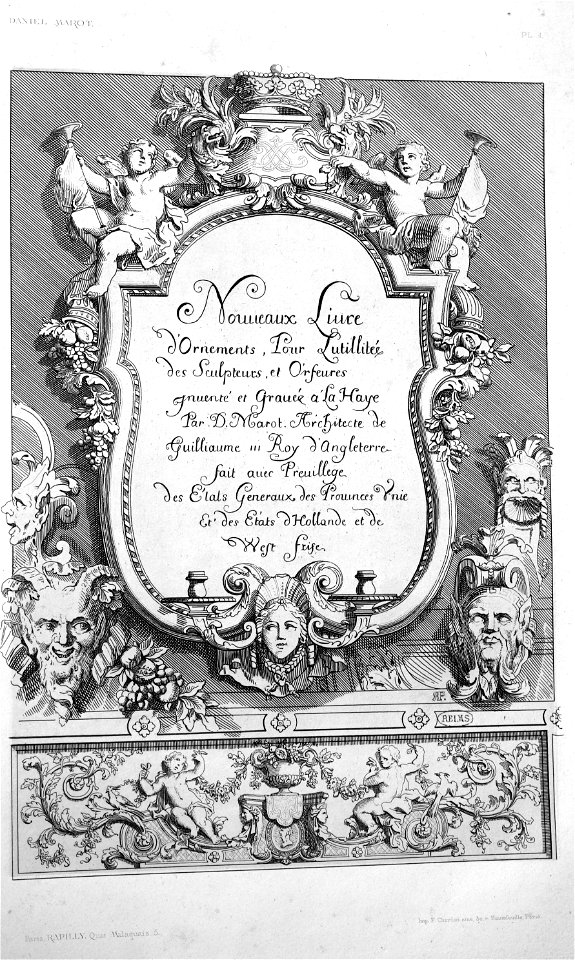 DANIEL MAROT.
Pl. 1.
Nouueaux Liure
d'Ornements, Pour Lutillitée
des Sculpteurs, et Orfeures
jnuenté et Grauée a La Haye
Par D. Marot. Architecte de
Guilliaume III Roy d'Angleterre
fait auec Preuillege
des Etats Generaux des Prouinces Vnie
Et des Etats d'Hollande et de
West frise
RP.
REIMS
Paris, RAPILLY, Quai Malaquais 5.
Imp. F. Chardon